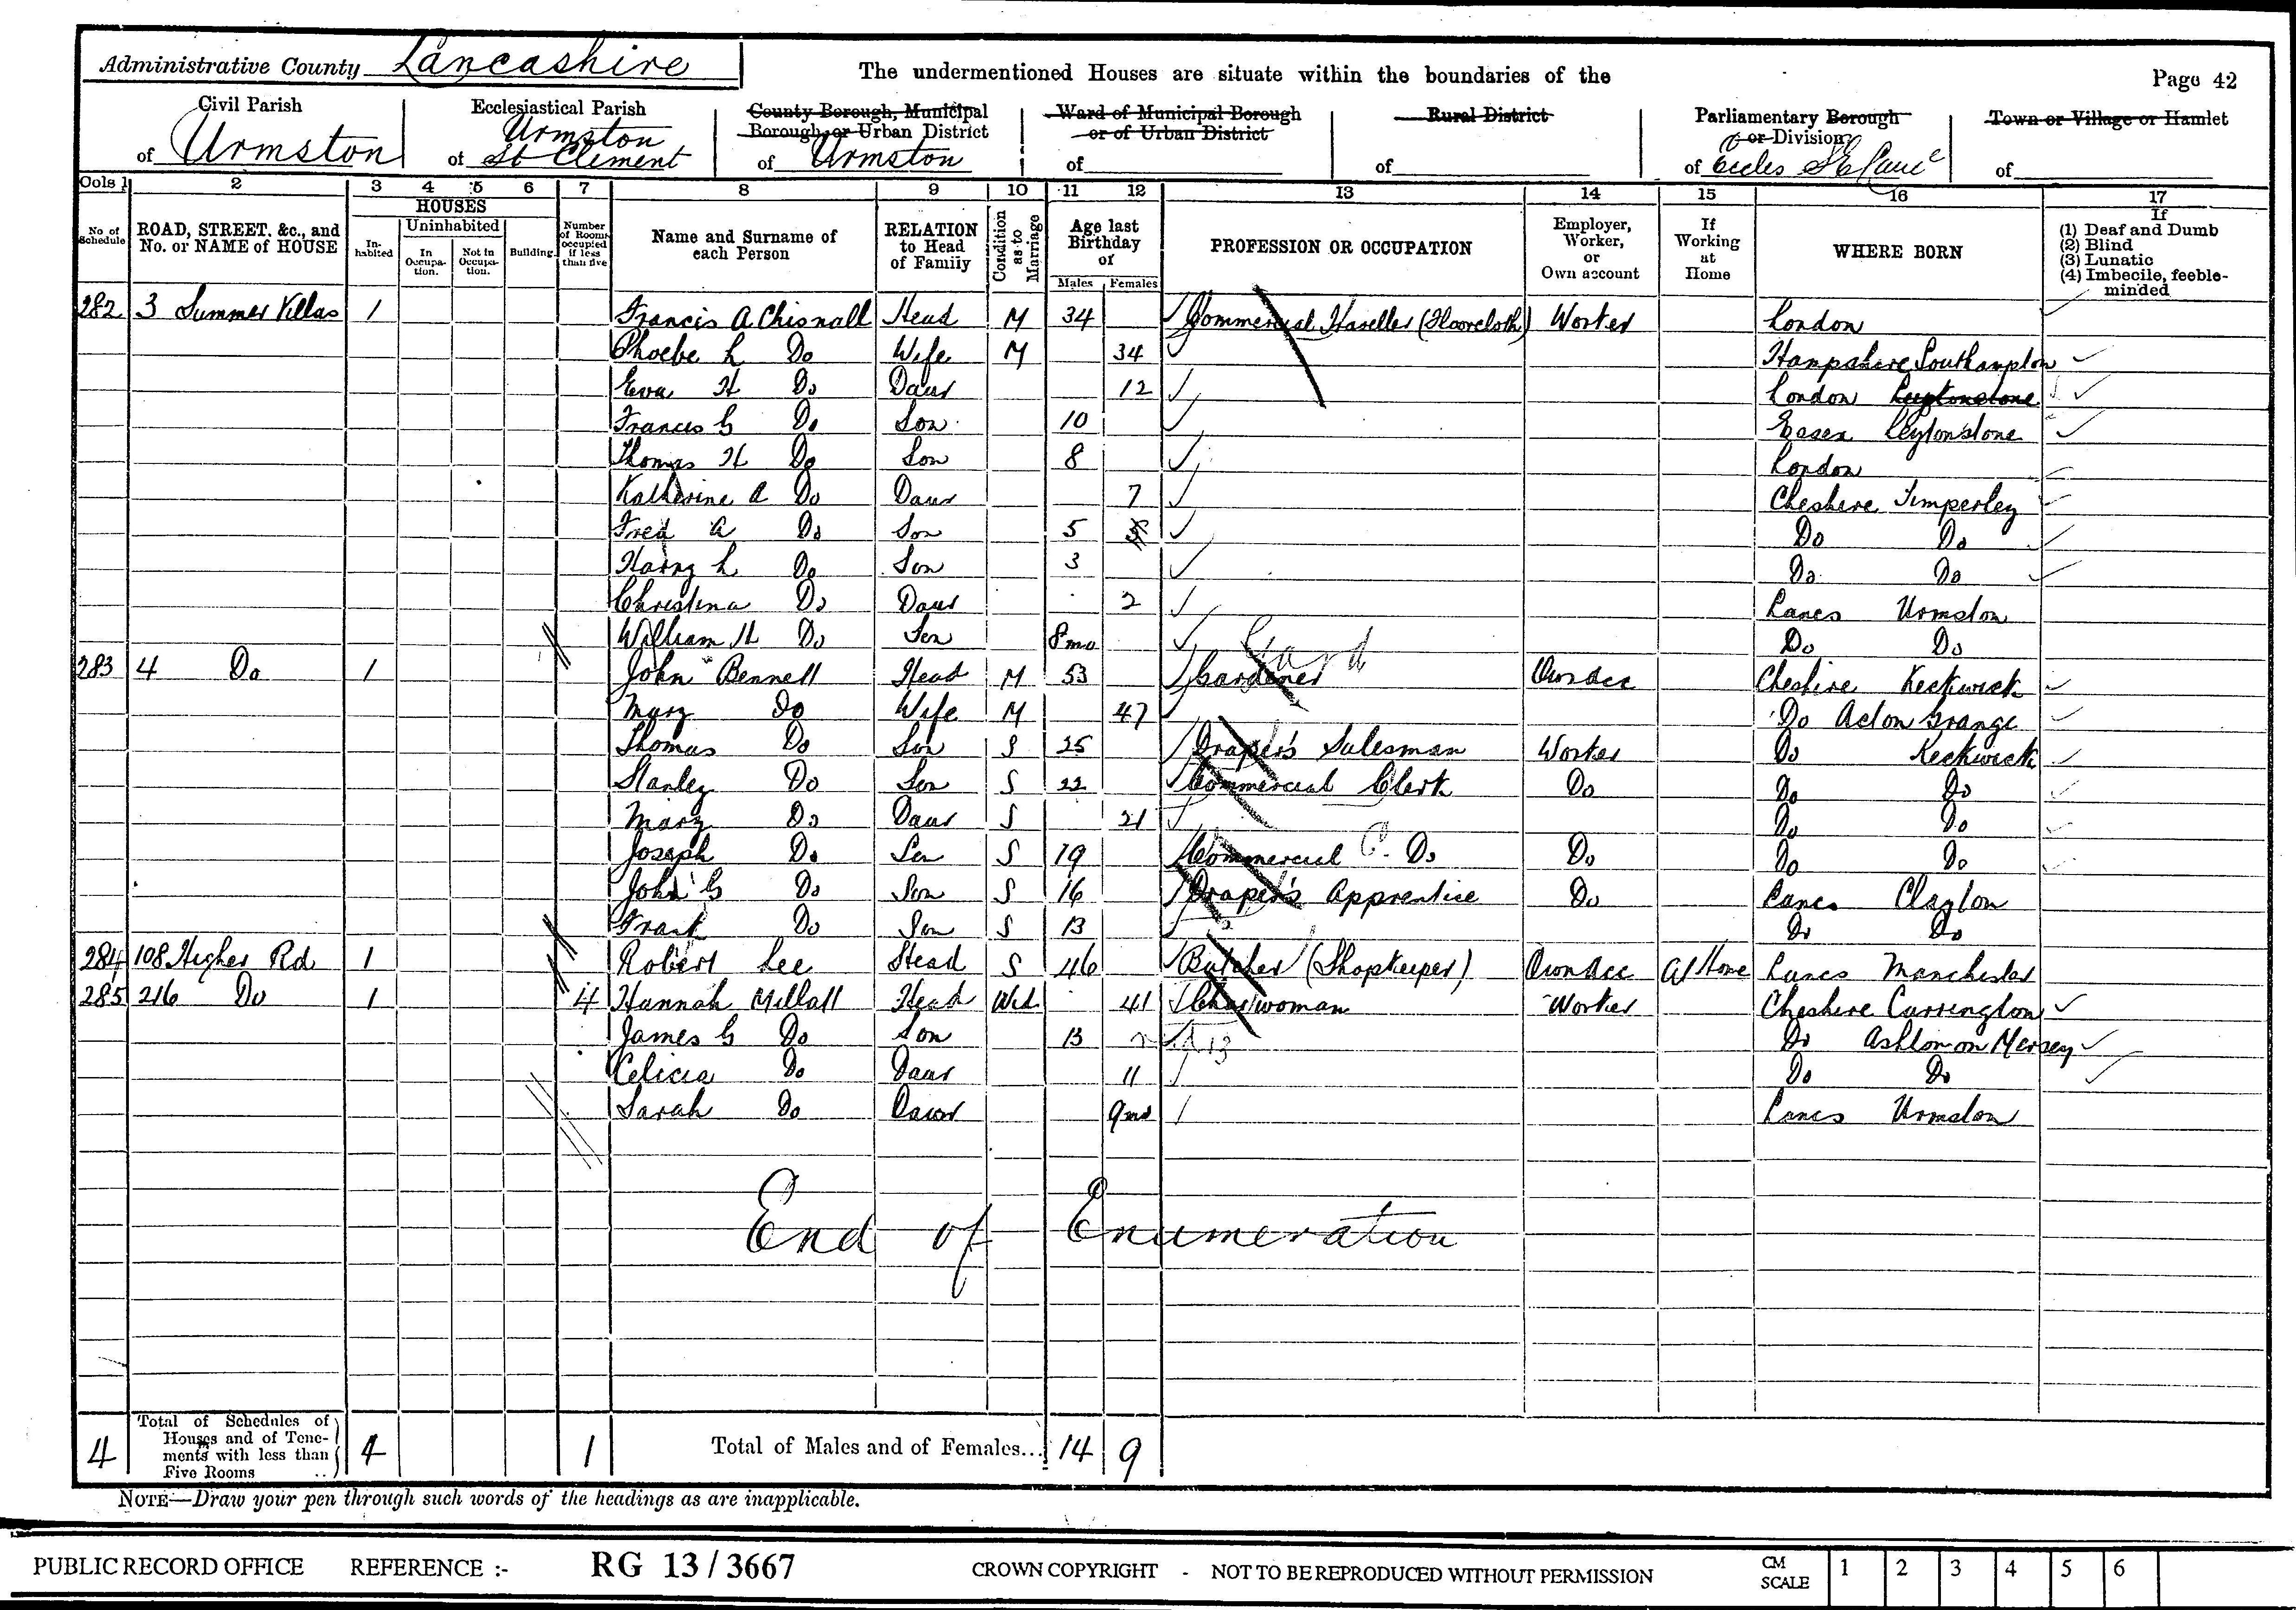 Administrative County Lancashire
The undermentioned Houses are situate within the boundaries of the
Page 42
Civil Parish
of Urmston
Ecclesiastical Parish
Urmston
of St Clement
County Borough, Municipal
Borough, or Urban District
of Urmston
Ward of Municipal Borough
or of Urban District
of
Rural District
of
Parliamentary Borough
or Division
of Eccles S E Lanc
Town or Village or Hamlet
of
Cols 1 2 3 4 5 6 7 8 9 10 11 12 13 14 15 16 17
No of Schedule
ROAD, STREET, &c., and No. or NAME of HOUSE
HOUSES
In-habited
Uninhabited
In Occupa-tion.
Not in Occupa-tion.
Building.
Number of Rooms occupied if less than five
Name and Surname of each Person
RELATION to Head of Family
Condition as to Marriage
Age last Birthday of
Males Females
PROFESSION OR OCCUPATION
Employer, Worker, or Own account
If Working at Home
WHERE BORN
If
(1) Deaf and Dumb
(2) Blind
(3) Lunatic
(4) Imbecile, feeble-minded
282 3 Summer Villas 1 Francis A Chisnall Head M 34 Commercial Traveller (Floorcloth) Worker London
Phoebe L Do Wife M 34 Hampshire Southampton
Eva H Do Daur 12 London Leytonstone
Francis G Do Son 10 Essex Leytonstone
Thomas H Do Son 8 London
Katherine A Do Daur 7 Cheshire Timperley
Fred A Do Son 5 5 Do Do
Harry L Do Son 3 Do Do
Christina Do Daur 2 Lancs Urmston
William H Do Son 8 mo Do Do
283 4 Do 1 John Bennett Head M 53 Gardener Own acc Cheshire Keckwick
Mary Do Wife M 47 Do Acton Grange
Thomas Do Son S 25 Draper's Salesman Worker Do Keckwick
Stanley Do Son S 22 Commercial Clerk Do Do Do
Mary Do Daur S 21 Do Do
Joseph Do Son S 19 Commercial C. Do Do Do Do
John G Do Son S 16 Draper's Apprentice Do Lancs Clayton
Frank Do Son S 13 Do Do
284 108 Higher Rd 1 Robert Lee Head S 46 Butcher (Shopkeeper) Own Acc At Home Lancs Manchester
285 216 Do 1 4 Hannah Millatt Head Wid 41 Charwoman Worker Cheshire Carrington
James G Do Son 13 13 Do Ashton on Mersey
Celicia Do Daur 11 Do Do
Sarah Do Daur 9 mo Lancs Urmston
End of Enumeration
4 Total of Schedules of Houses and of Tene-ments with less than Five Rooms .. 4 1 Total of Males and of Females... 14 9
NOTE—Draw your pen through such words of the headings as are inapplicable.
PUBLIC RECORD OFFICE REFERENCE :- RG 13 / 3667 CROWN COPYRIGHT - NOT TO BE REPRODUCED WITHOUT PERMISSION CM SCALE 1 2 3 4 5 6